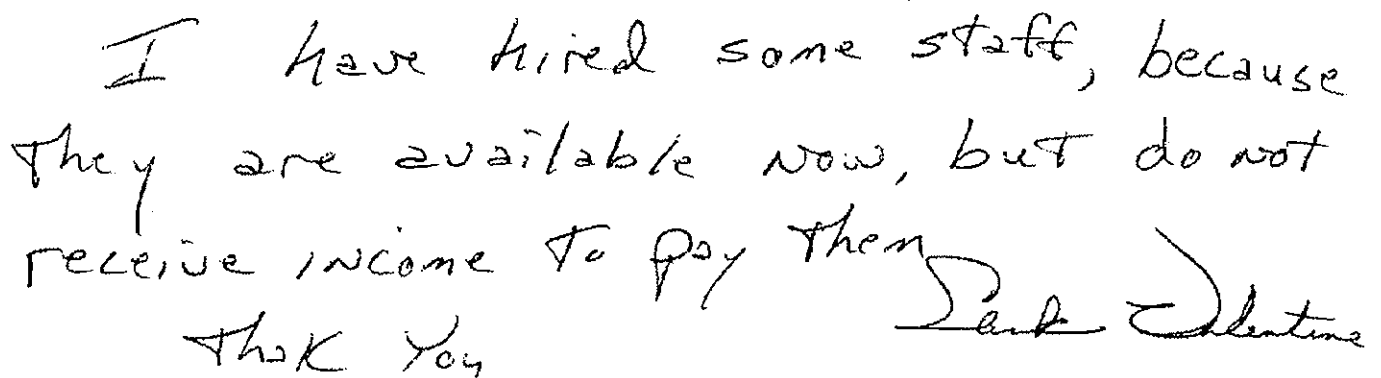 I have hired some staff, because
they are available now, but do not
receive income to pay them
Thak You
Valentine